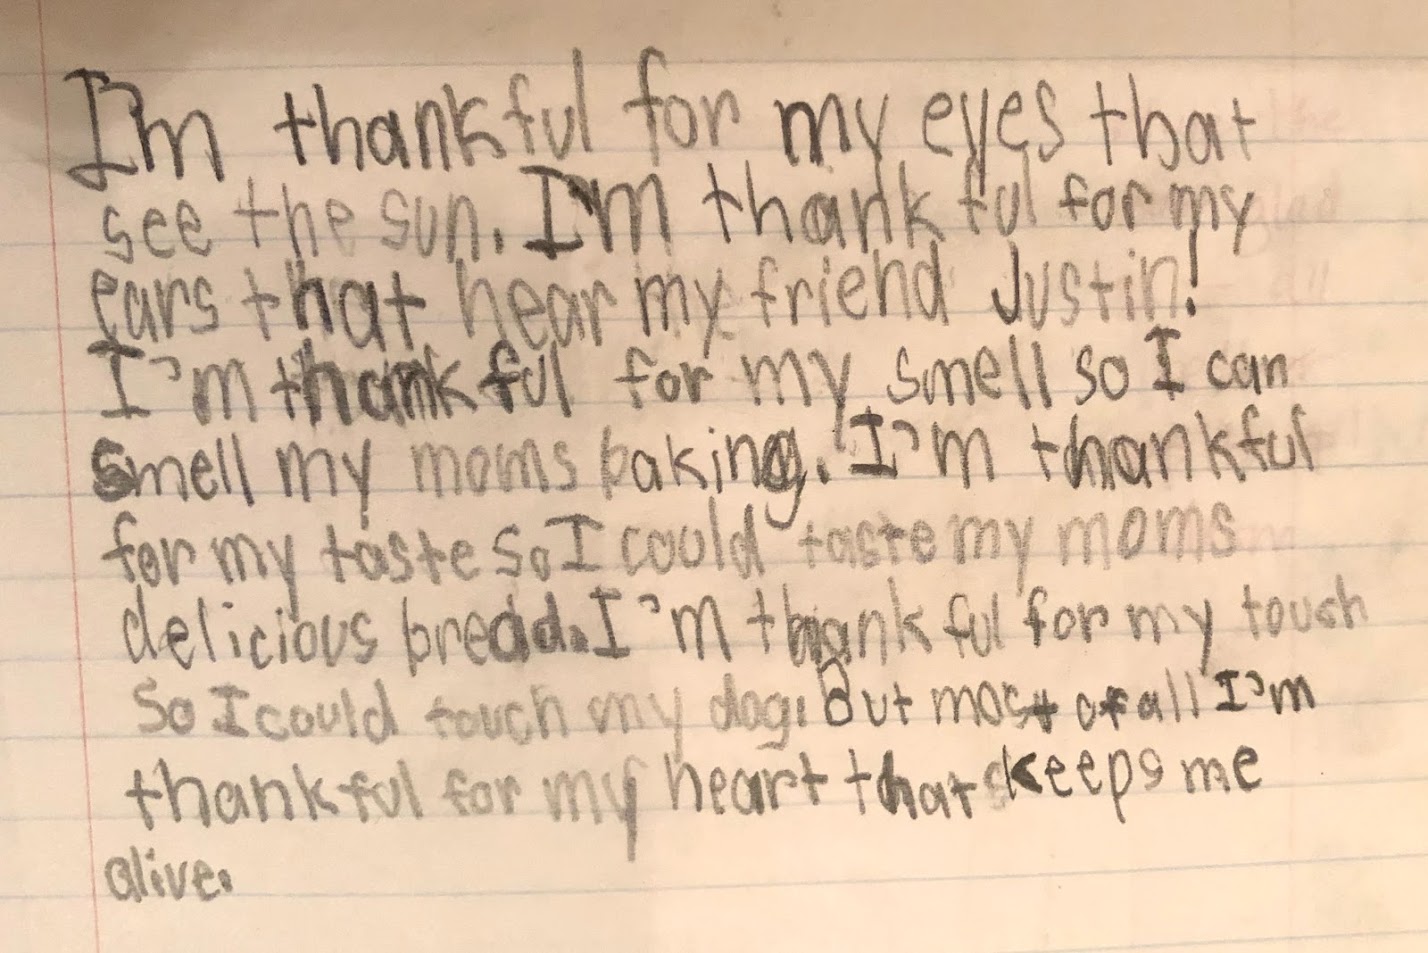 I'm thankful for my eyes that
see the sun. I'm thankful for my
ears that hear my friend Justin!
I'm thankful for my smell so I can
smell my moms baking. I'm thankful
for my taste so I could taste my moms
delicious bread. I'm thankful for my touch
so I could touch my dog. But most of all I'm
thankful for my heart that keeps me
alive.